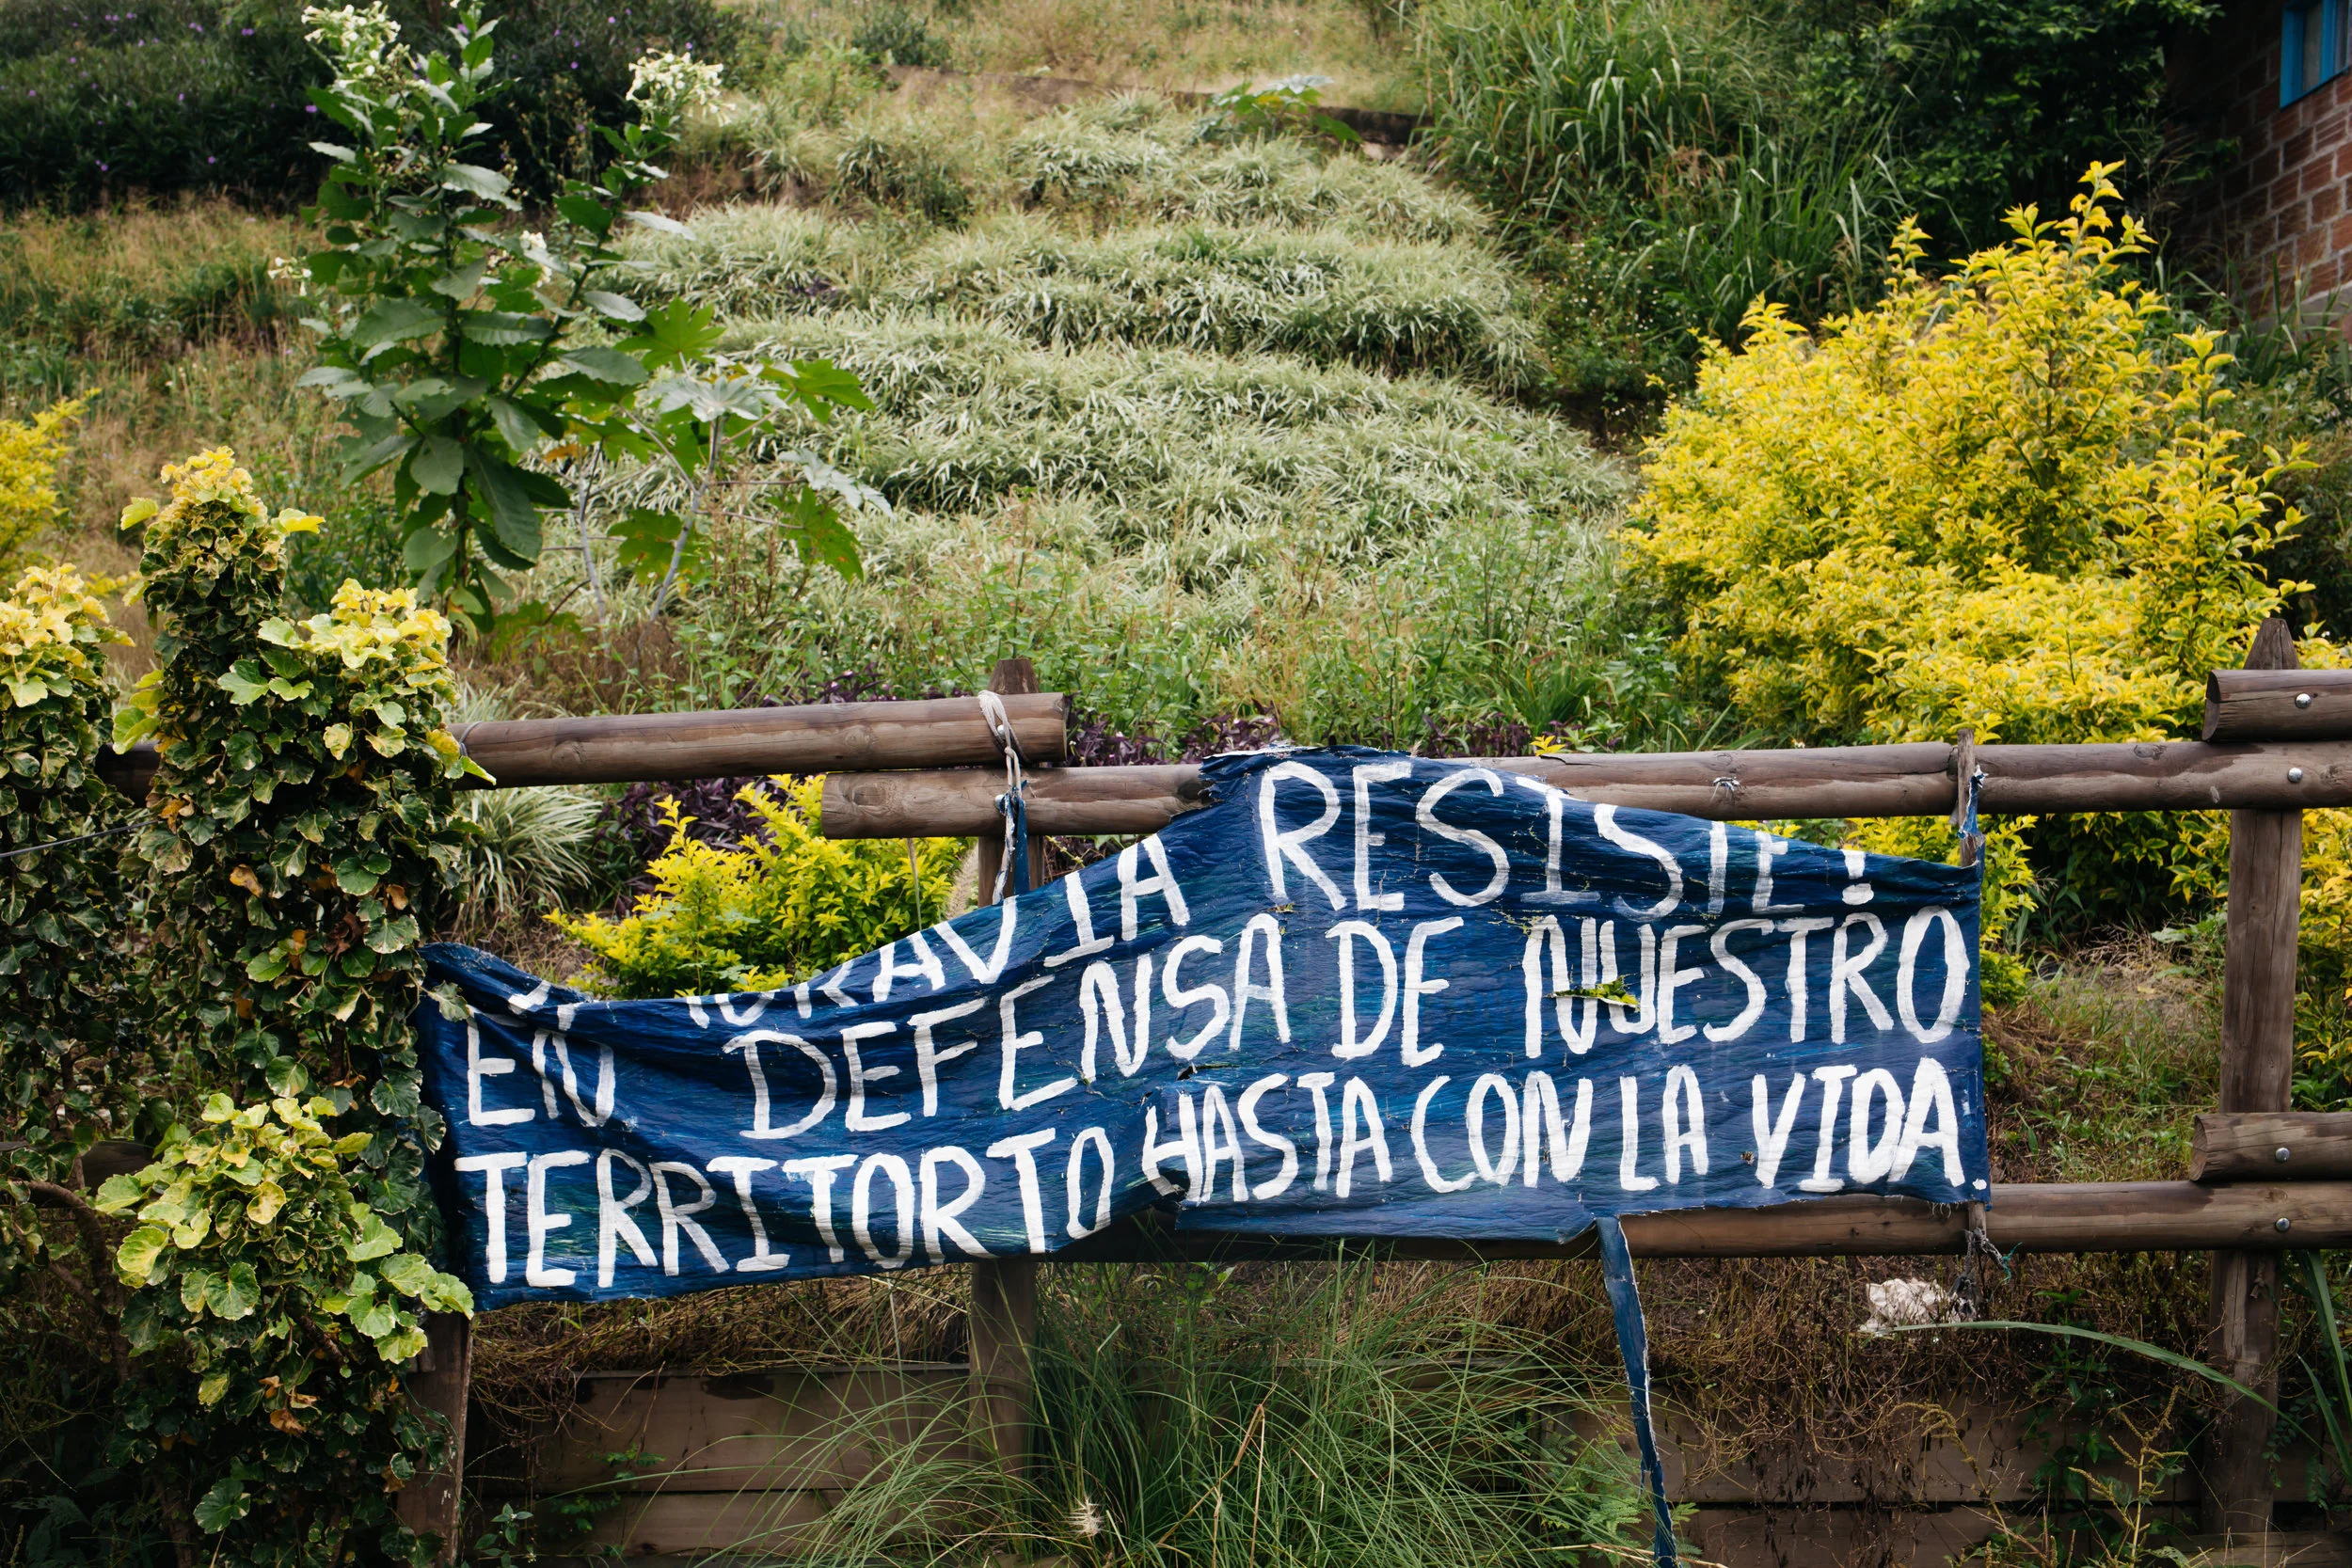 ¡MORAVIA RESISTE!
EN DEFENSA DE NUESTRO
TERRITORTO HASTA CON LA VIDA.